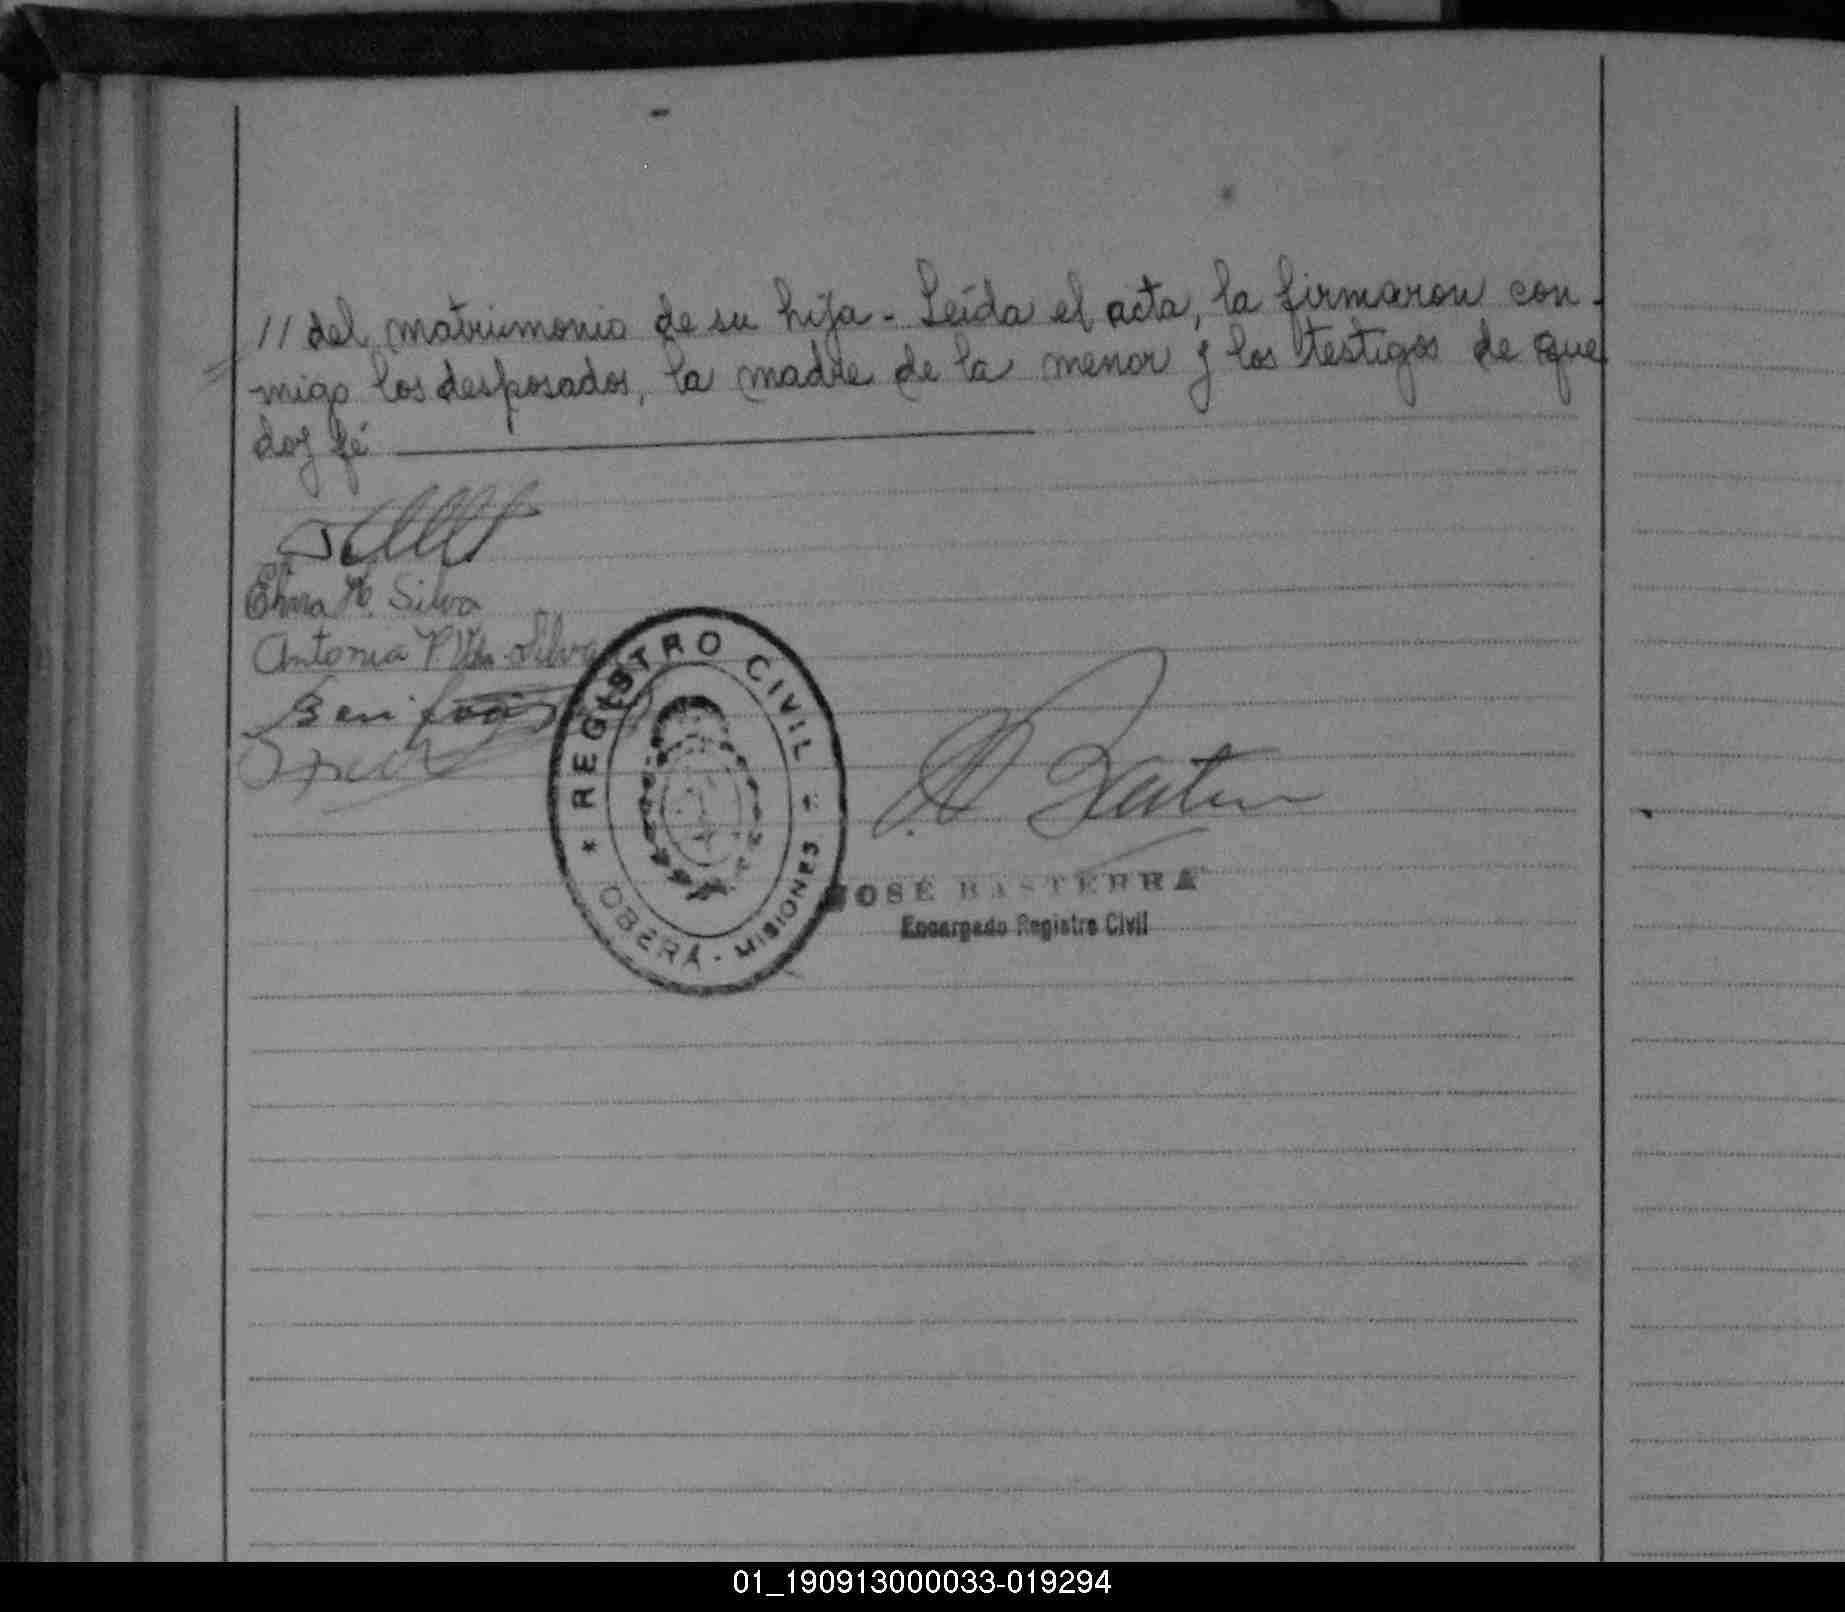 // del matrimonio de su hija - Leída el acta, la firmaron con-
-migo los desposados, la madre de la menor y los testigos de que
doy fé
Elma H. Silva
Antonia P. Vda. Silva
REGISTRO CIVIL
OBERÁ - MISIONES
JOSÉ BASTERRA
Encargado Registro Civil
01_190913000033-019294